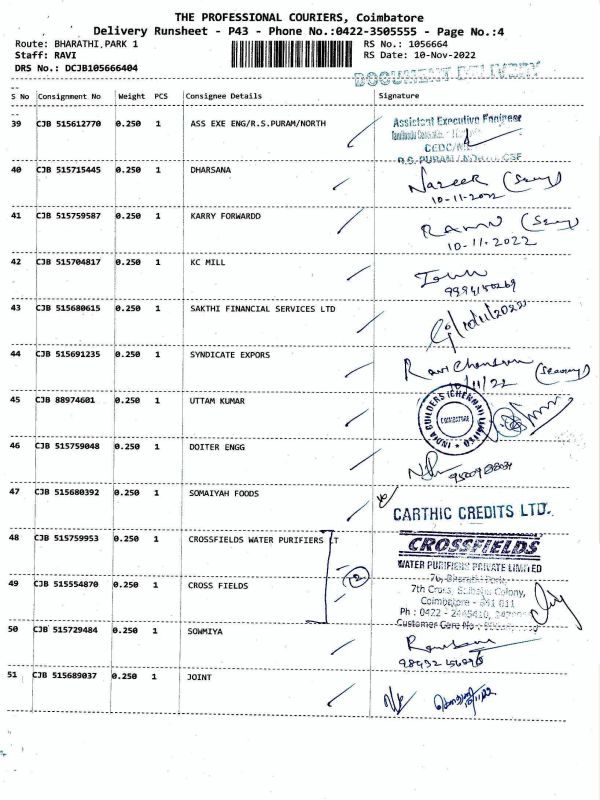 THE PROFESSIONAL COURIERS, Coimbatore
Delivery Runsheet - P43 - Phone No.:0422-3505555 - Page No.:4
Route: BHARATHI PARK 1 RS No.: 1056664
Staff: RAVI RS Date: 10-Nov-2022
DRS No.: DCJB105666404
DOCUMENT DELIVERY
S No Consignment No Weight PCS Consignee Details Signature
39 CJB 515612770 0.250 1 ASS EXE ENG/R.S.PURAM/NORTH
Assistant Executive Engineer
R.S. PURAM
40 CJB 515715445 0.250 1 DHARSANA
Nazeer
10-11-2022
41 CJB 515759587 0.250 1 KARRY FORWARDO
10-11-2022
42 CJB 515704817 0.250 1 KC MILL
43 CJB 515680615 0.250 1 SAKTHI FINANCIAL SERVICES LTD
10/11/2022
44 CJB 515691235 0.250 1 SYNDICATE EXPORS
10/11/22
45 CJB 88974601 0.250 1 UTTAM KUMAR
COIMBATORE
46 CJB 515759048 0.250 1 DOITER ENGG
47 CJB 515680392 0.250 1 SOMAIYAH FOODS
CARTHIC CREDITS LTD.
48 CJB 515759953 0.250 1 CROSSFIELDS WATER PURIFIERS LT
CROSSFIELDS
WATER PURIFIERS PRIVATE LIMITED
49 CJB 515554870 0.250 1 CROSS FIELDS
76, Bharathi Park,
7th Cross, Saibaba Colony,
Coimbatore - 641 011
Ph : 0422 -
Customer Care No
50 CJB 515729484 0.250 1 SOWMIYA
51 CJB 515689037 0.250 1 JOINT